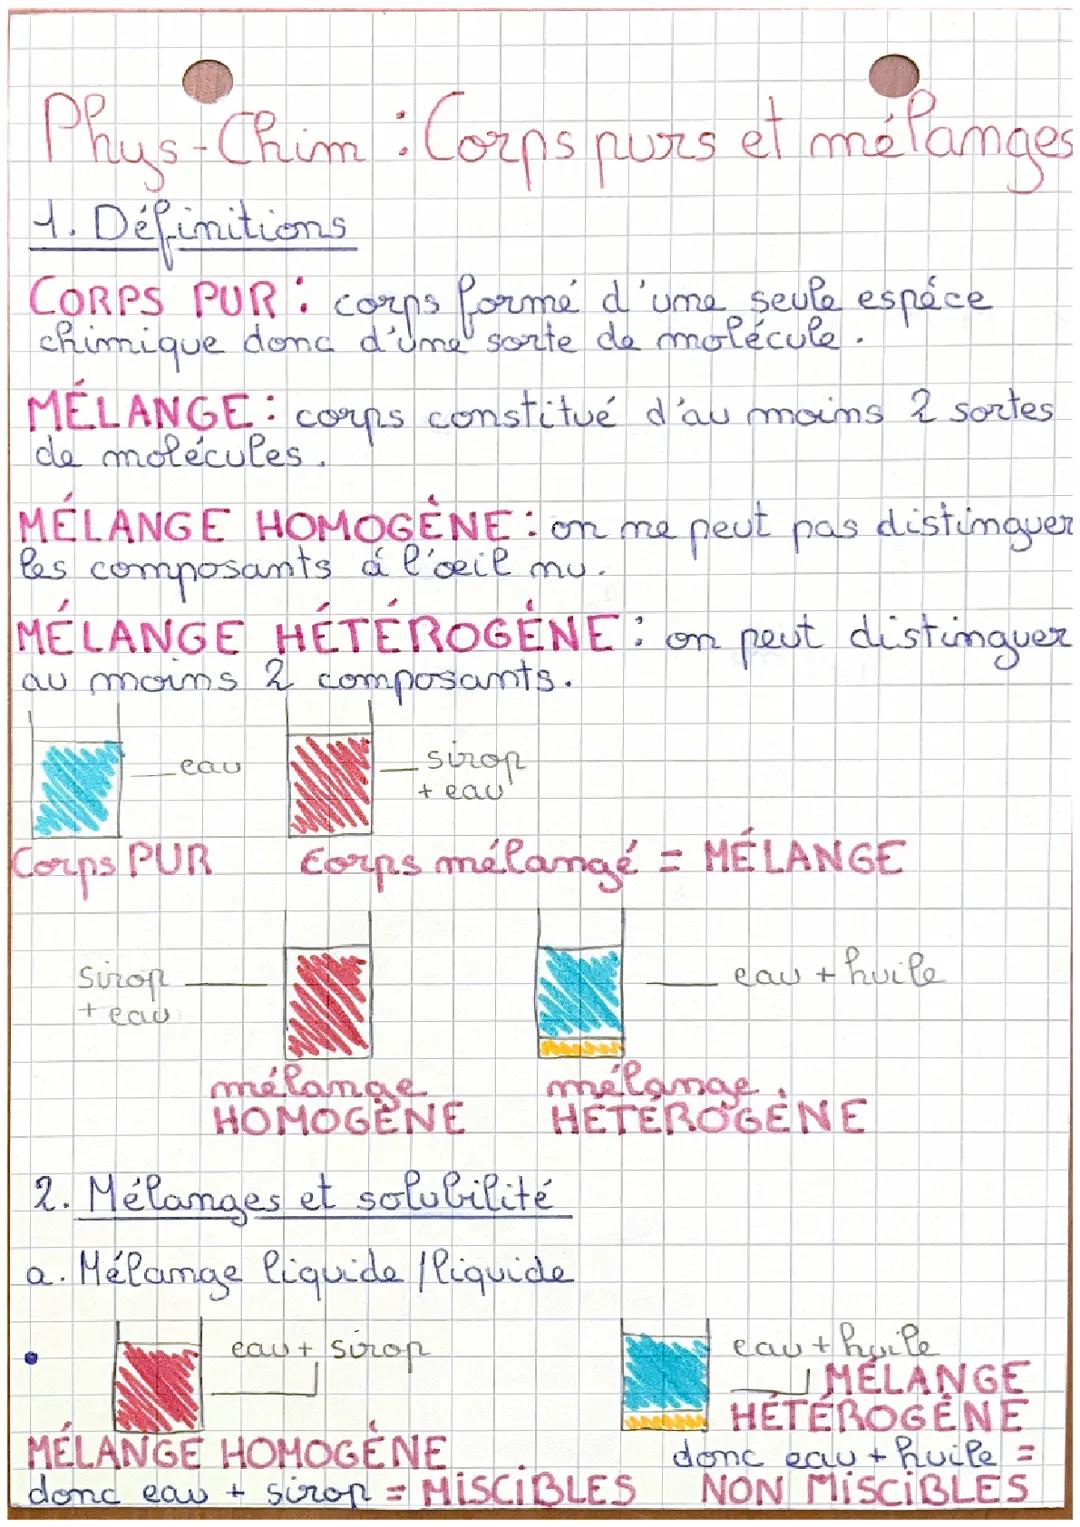 Phys-Chim : Corps purs et mélanges
1. Définitions
CORPS PUR : corps formé d'une seule espéce
chimique donc d'une sorte de molécule.
MÉLANGE : corps constitué d'au moins 2 sortes
de molécules.
MÉLANGE HOMOGÉNE : on ne peut pas distinguer
les composants á l'œil nu.
MÉLANGE HÉTÉROGÉNE : on peut distinguer
au moins 2 composants.
eau
sirop
+ eau
Corps PUR
Corps mélangé = MÉLANGE
Sirop
+ eau
eau + huile
mélange
HOMOGÈNE
mélange
HÉTÉROGÈNE
2. Mélanges et solubilité
a. Mélange liquide / liquide
eau + sirop
eau + huile
MÉLANGE
HÉTÉROGÈNE
MÉLANGE HOMOGÈNE
donc eau + huile =
donc eau + sirop = MISCIBLES
NON MISCIBLES